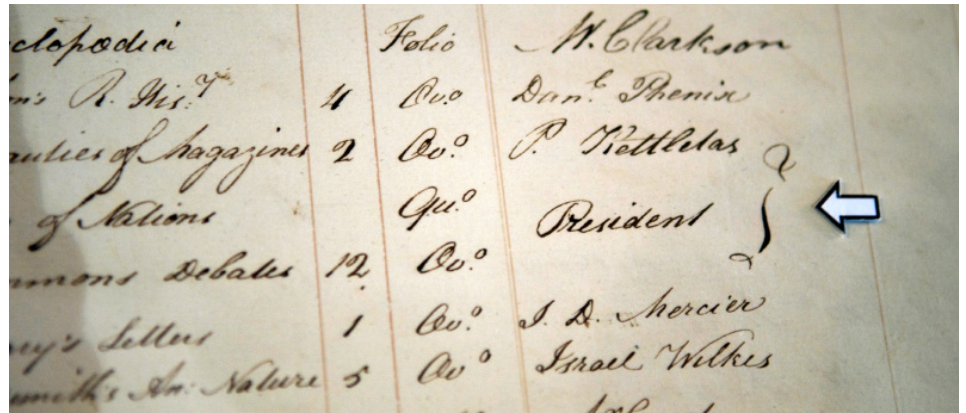 clopædia Folio M. Clarkson
R. His.ʸ 4 Ovo Dan.ˡ Phenix
auties of Magazines 2 Ov.º P. Kettletas
of Nations Qu.º President
mmons Debates 12 Ov.º
Letters 1 Ov.º J. D. Mercier
An. Nature 5 Ovº Israel Wilkes